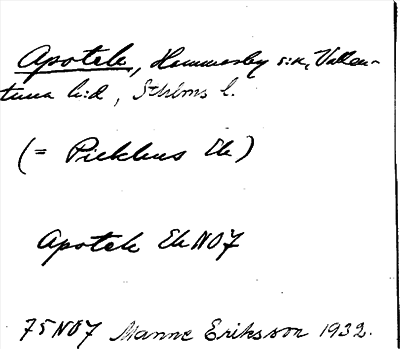 Apotek, Hammarby s:n, Vallen-
tuna h:d, Sthlms l.
(= Pickhus Ek)
Apotek Ek NO7
75NO7 Manne Eriksson 1932.